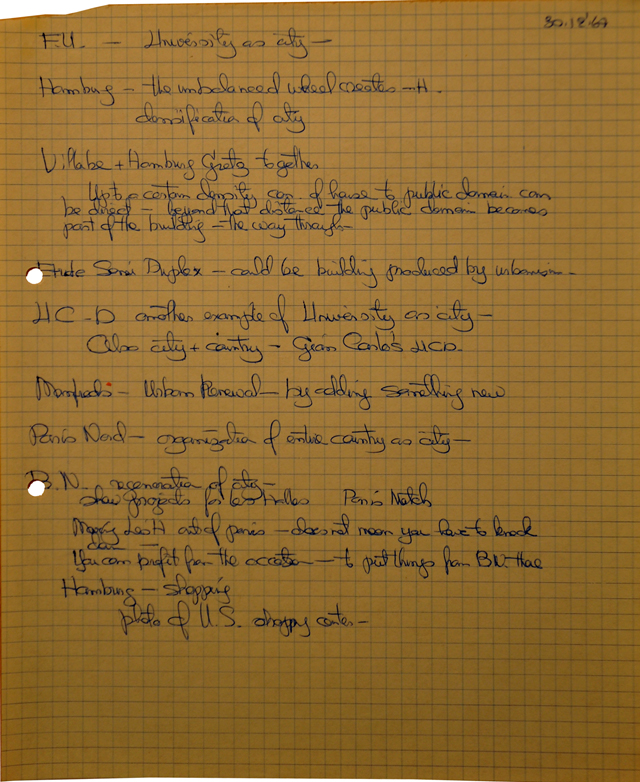 30.12.67
F.U. — University as city —
Hamburg — the unbalanced wheel creates — H.
densification of city
together
Up to a certain density con. of house to public domain can
be direct — beyond that distance the public domain becomes
part of the building — the way through —
Semi Duplex — could be building produced by urbanism —
UC-D another example of University as city —
Also city + country — Gian Carlo's UCD.
Urban Renewal — by adding something new
Paris Nord — organization of entire country as city —
B.N. regeneration of city —
show projects for Les Halles Paris Match
Les H out of paris — does not mean you have to knock
You can profit from the occasion — to put things from BN there
Hamburg — shopping
photo of U.S. shopping center —